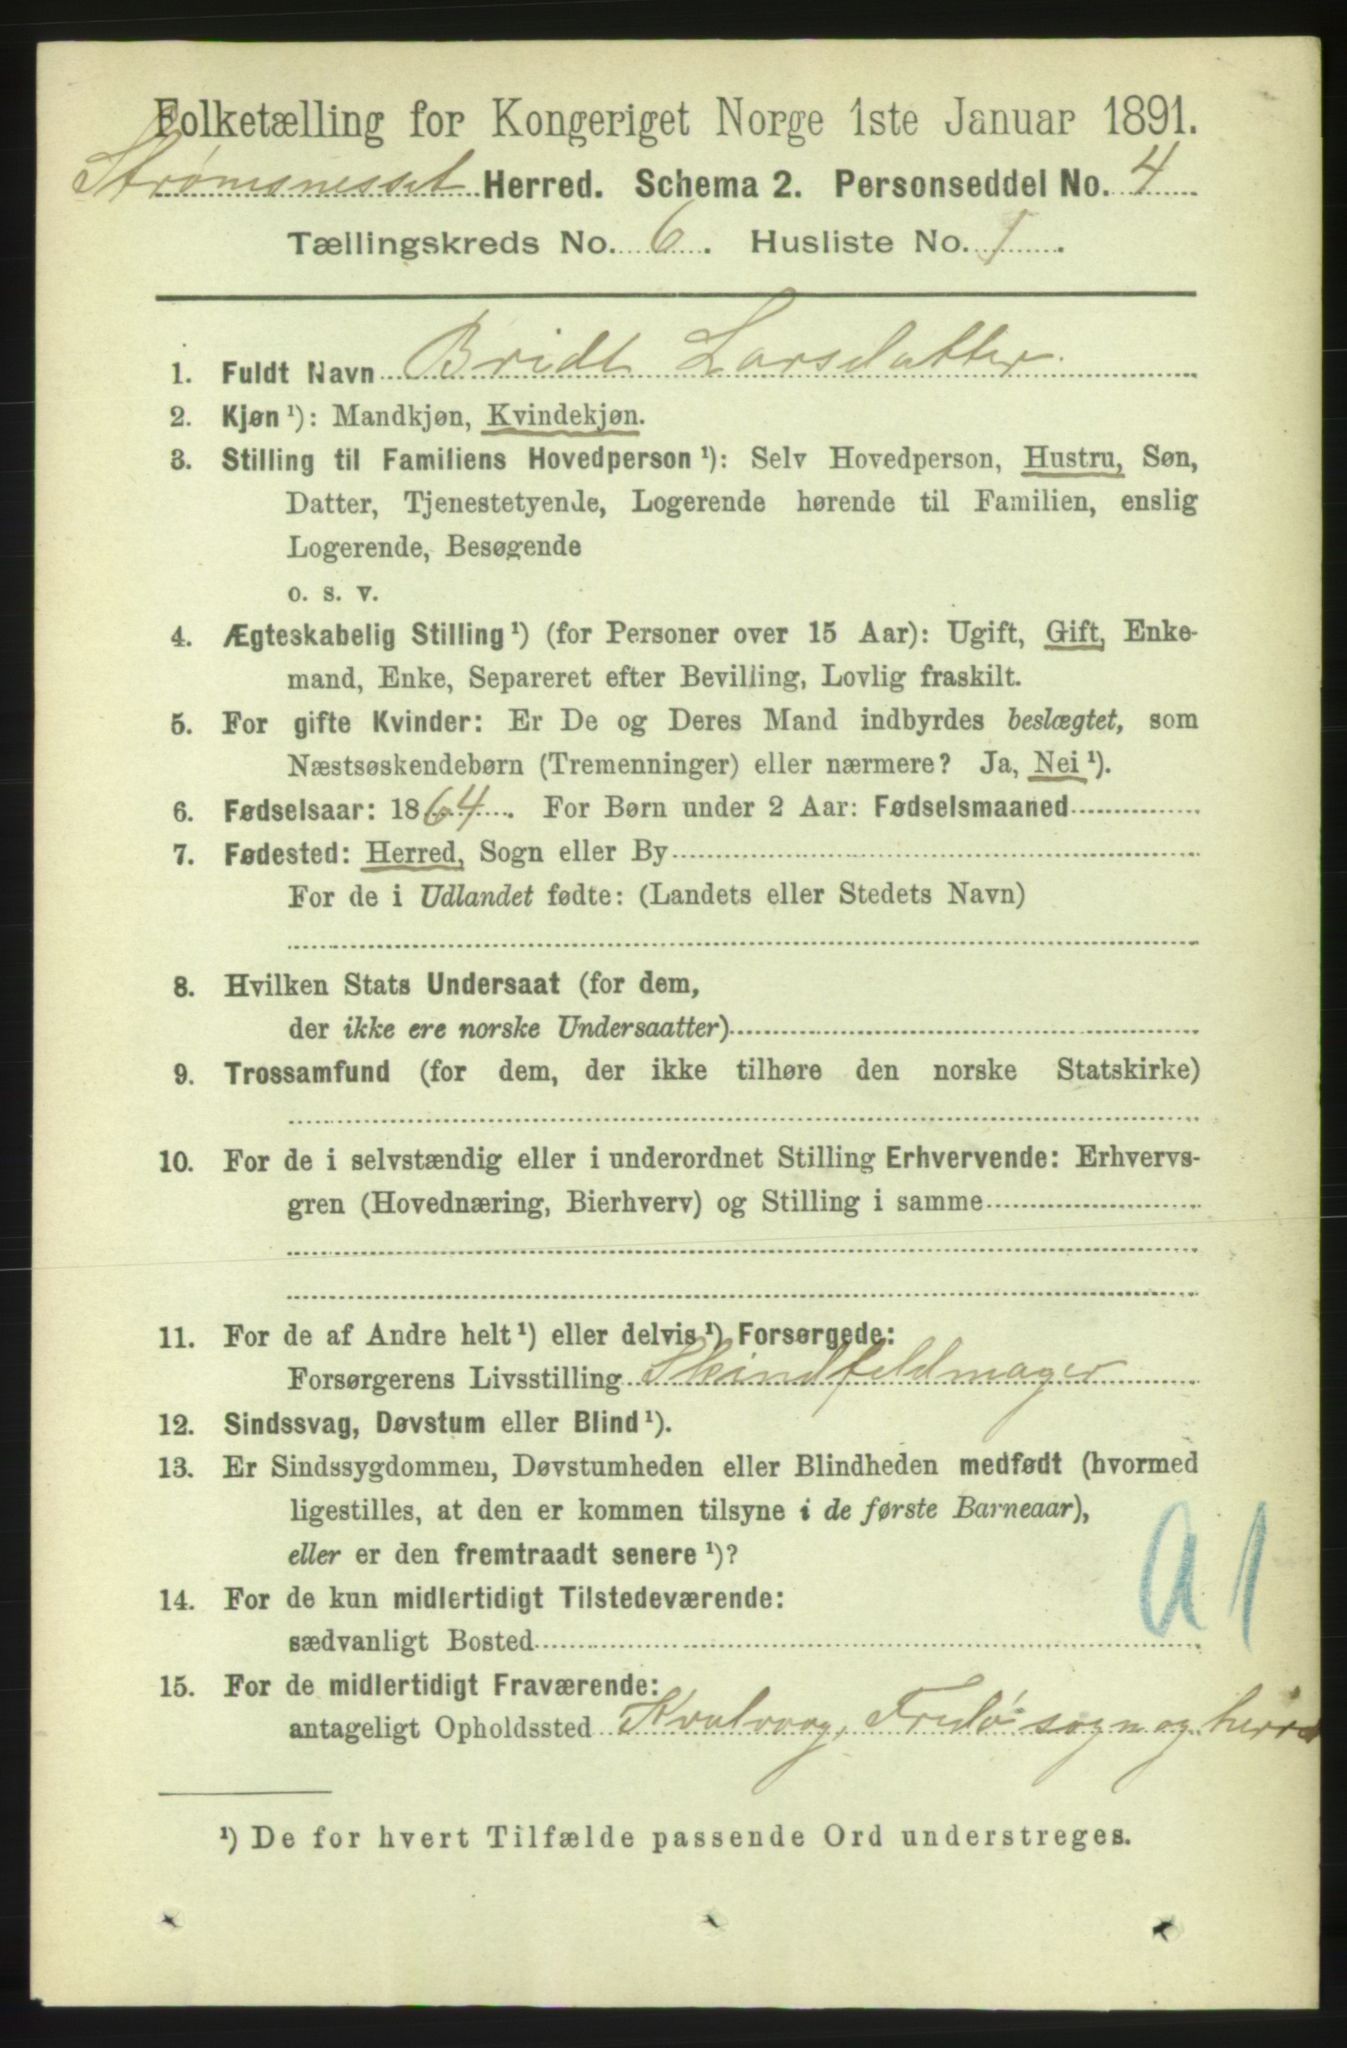 Folketælling for Kongeriget Norge 1ste Januar 1891.
Strømsnesset Herred. Schema 2. Personseddel No. 4
Tællingskreds No. 6. Husliste No. 1.
1. Fuldt Navn Bridt Larsdatter.
2. Kjøn ¹): Mandkjøn, Kvindekjøn.
3. Stilling til Familiens Hovedperson ¹): Selv Hovedperson, Hustru, Søn,
Datter, Tjenestetyende, Logerende hørende til Familien, enslig
Logerende, Besøgende
o. s. v.
4. Ægteskabelig Stilling ¹) (for Personer over 15 Aar): Ugift, Gift, Enke-
mand, Enke, Separeret efter Bevilling, Lovlig fraskilt.
5. For gifte Kvinder: Er De og Deres Mand indbyrdes beslægtet, som
Næstsøskendebørn (Tremenninger) eller nærmere? Ja, Nei ¹).
6. Fødselsaar: 1864. For Børn under 2 Aar: Fødselsmaaned
7. Fødested: Herred, Sogn eller By
For de i Udlandet fødte: (Landets eller Stedets Navn)
8. Hvilken Stats Undersaat (for dem,
der ikke ere norske Undersaatter)
9. Trossamfund (for dem, der ikke tilhøre den norske Statskirke)
10. For de i selvstændig eller i underordnet Stilling Erhvervende: Erhvervs-
gren (Hovednæring, Bierhverv) og Stilling i samme
11. For de af Andre helt ¹) eller delvis ¹) Forsørgede:
Forsørgerens Livsstilling Skindfeldmager
12. Sindssvag, Døvstum eller Blind ¹).
13. Er Sindssygdommen, Døvstumheden eller Blindheden medfødt (hvormed
ligestilles, at den er kommen tilsyne i de første Barneaar),
eller er den fremtraadt senere ¹)?
A1
14. For de kun midlertidigt Tilstedeværende:
sædvanligt Bosted
15. For de midlertidigt Fraværende:
antageligt Opholdssted Kvalvaag, Fredø sogn og herred
¹) De for hvert Tilfælde passende Ord understreges.